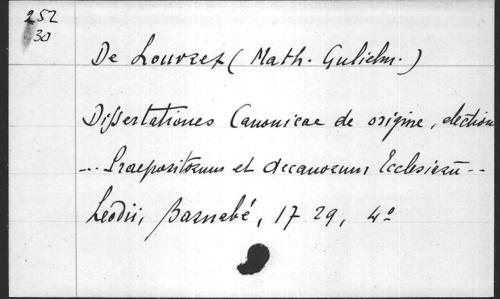 252
30
De Louvrex (Math. Gulielm.)
Dissertationes Canonicae de origine, election
... Praepositorum et decanorum Ecclesiarū ...
Leodii, Barnabé, 1729, 4º